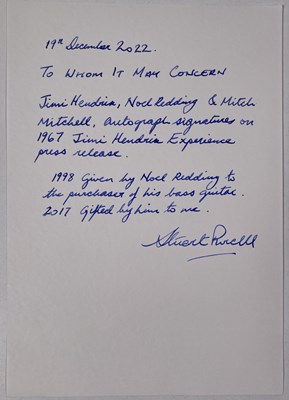 19th December 2022.
To Whom It May Concern
Jimi Hendrix, Noel Redding & Mitch
Mitchell, autograph signatures on
1967 Jimi Hendrix Experience
press release.
1998 Given by Noel Redding to
the purchaser of his bass guitar.
2017 Gifted by him to me.
Stuart Purcell